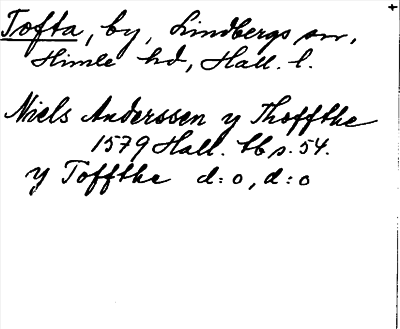 Tofta, by, Lindbergs sn,
Himle hd, Hall. l.
Niels Anderssen y Thoffthe
1579 Hall. tb s. 54.
y Toffthe d:o, d:o